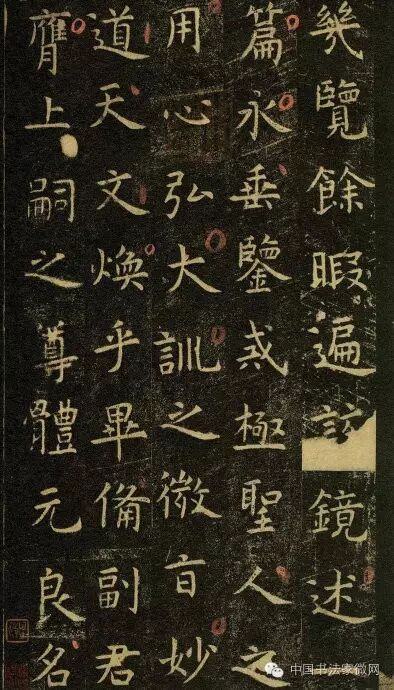 幾覽餘暇遍該鏡述
篇永垂鑒戒極聖人之
用心弘大訓之微旨妙
道天文煥乎畢備副君
膺上嗣之尊體元良名
中国书法家微网